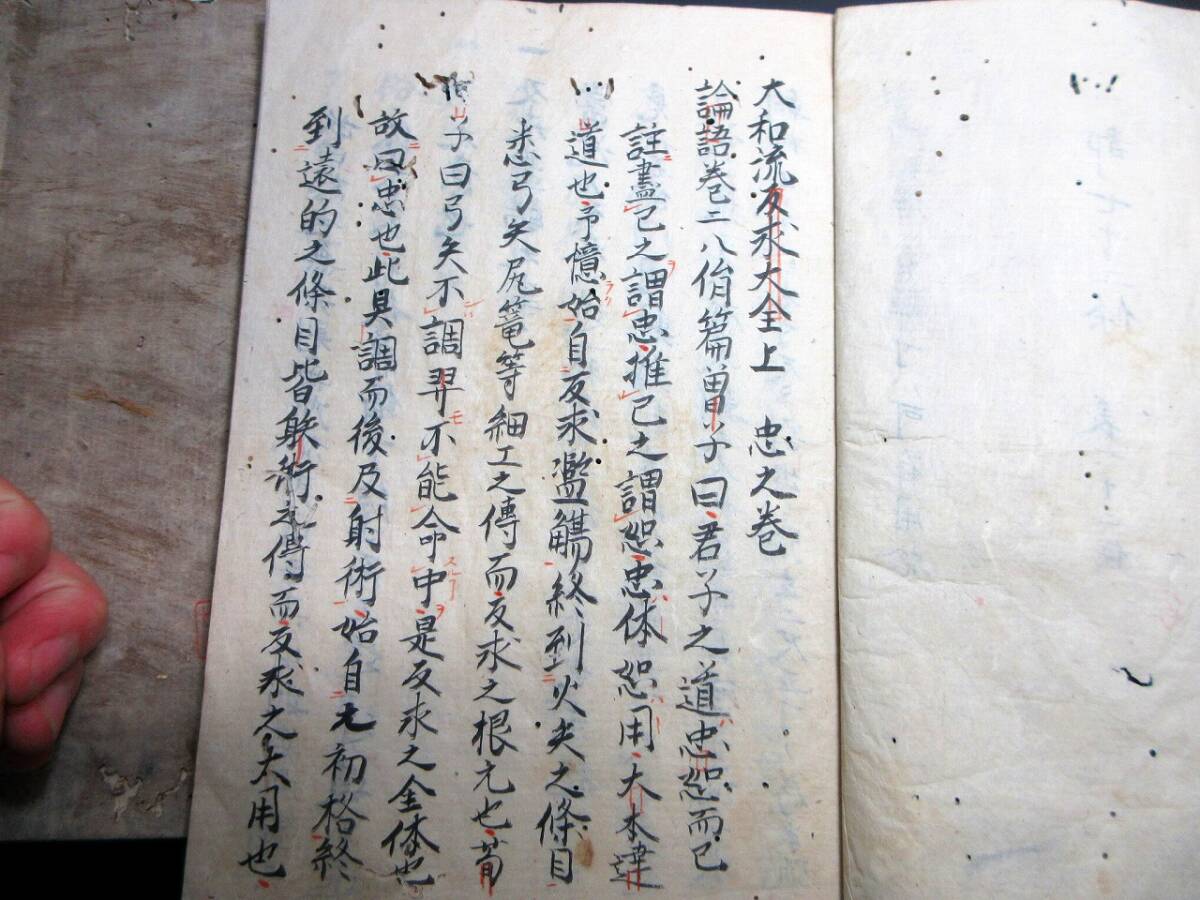 大和流反求大全上　忠之巻
論語巻二八佾篇曽子曰君子之道忠恕而已
註盡己之謂忠推己之謂恕忠体恕用大本達
道也予憶始自反求濫觴終到火矢之條目
悉弓矢尻篭等細工之傳而反求之根元也荀
子曰弓矢不調羿不能命中是反求之全体也
故曰忠也此具調而後及射術始自元初格終
到遠的之條目皆躾術之傳而反求之大用也